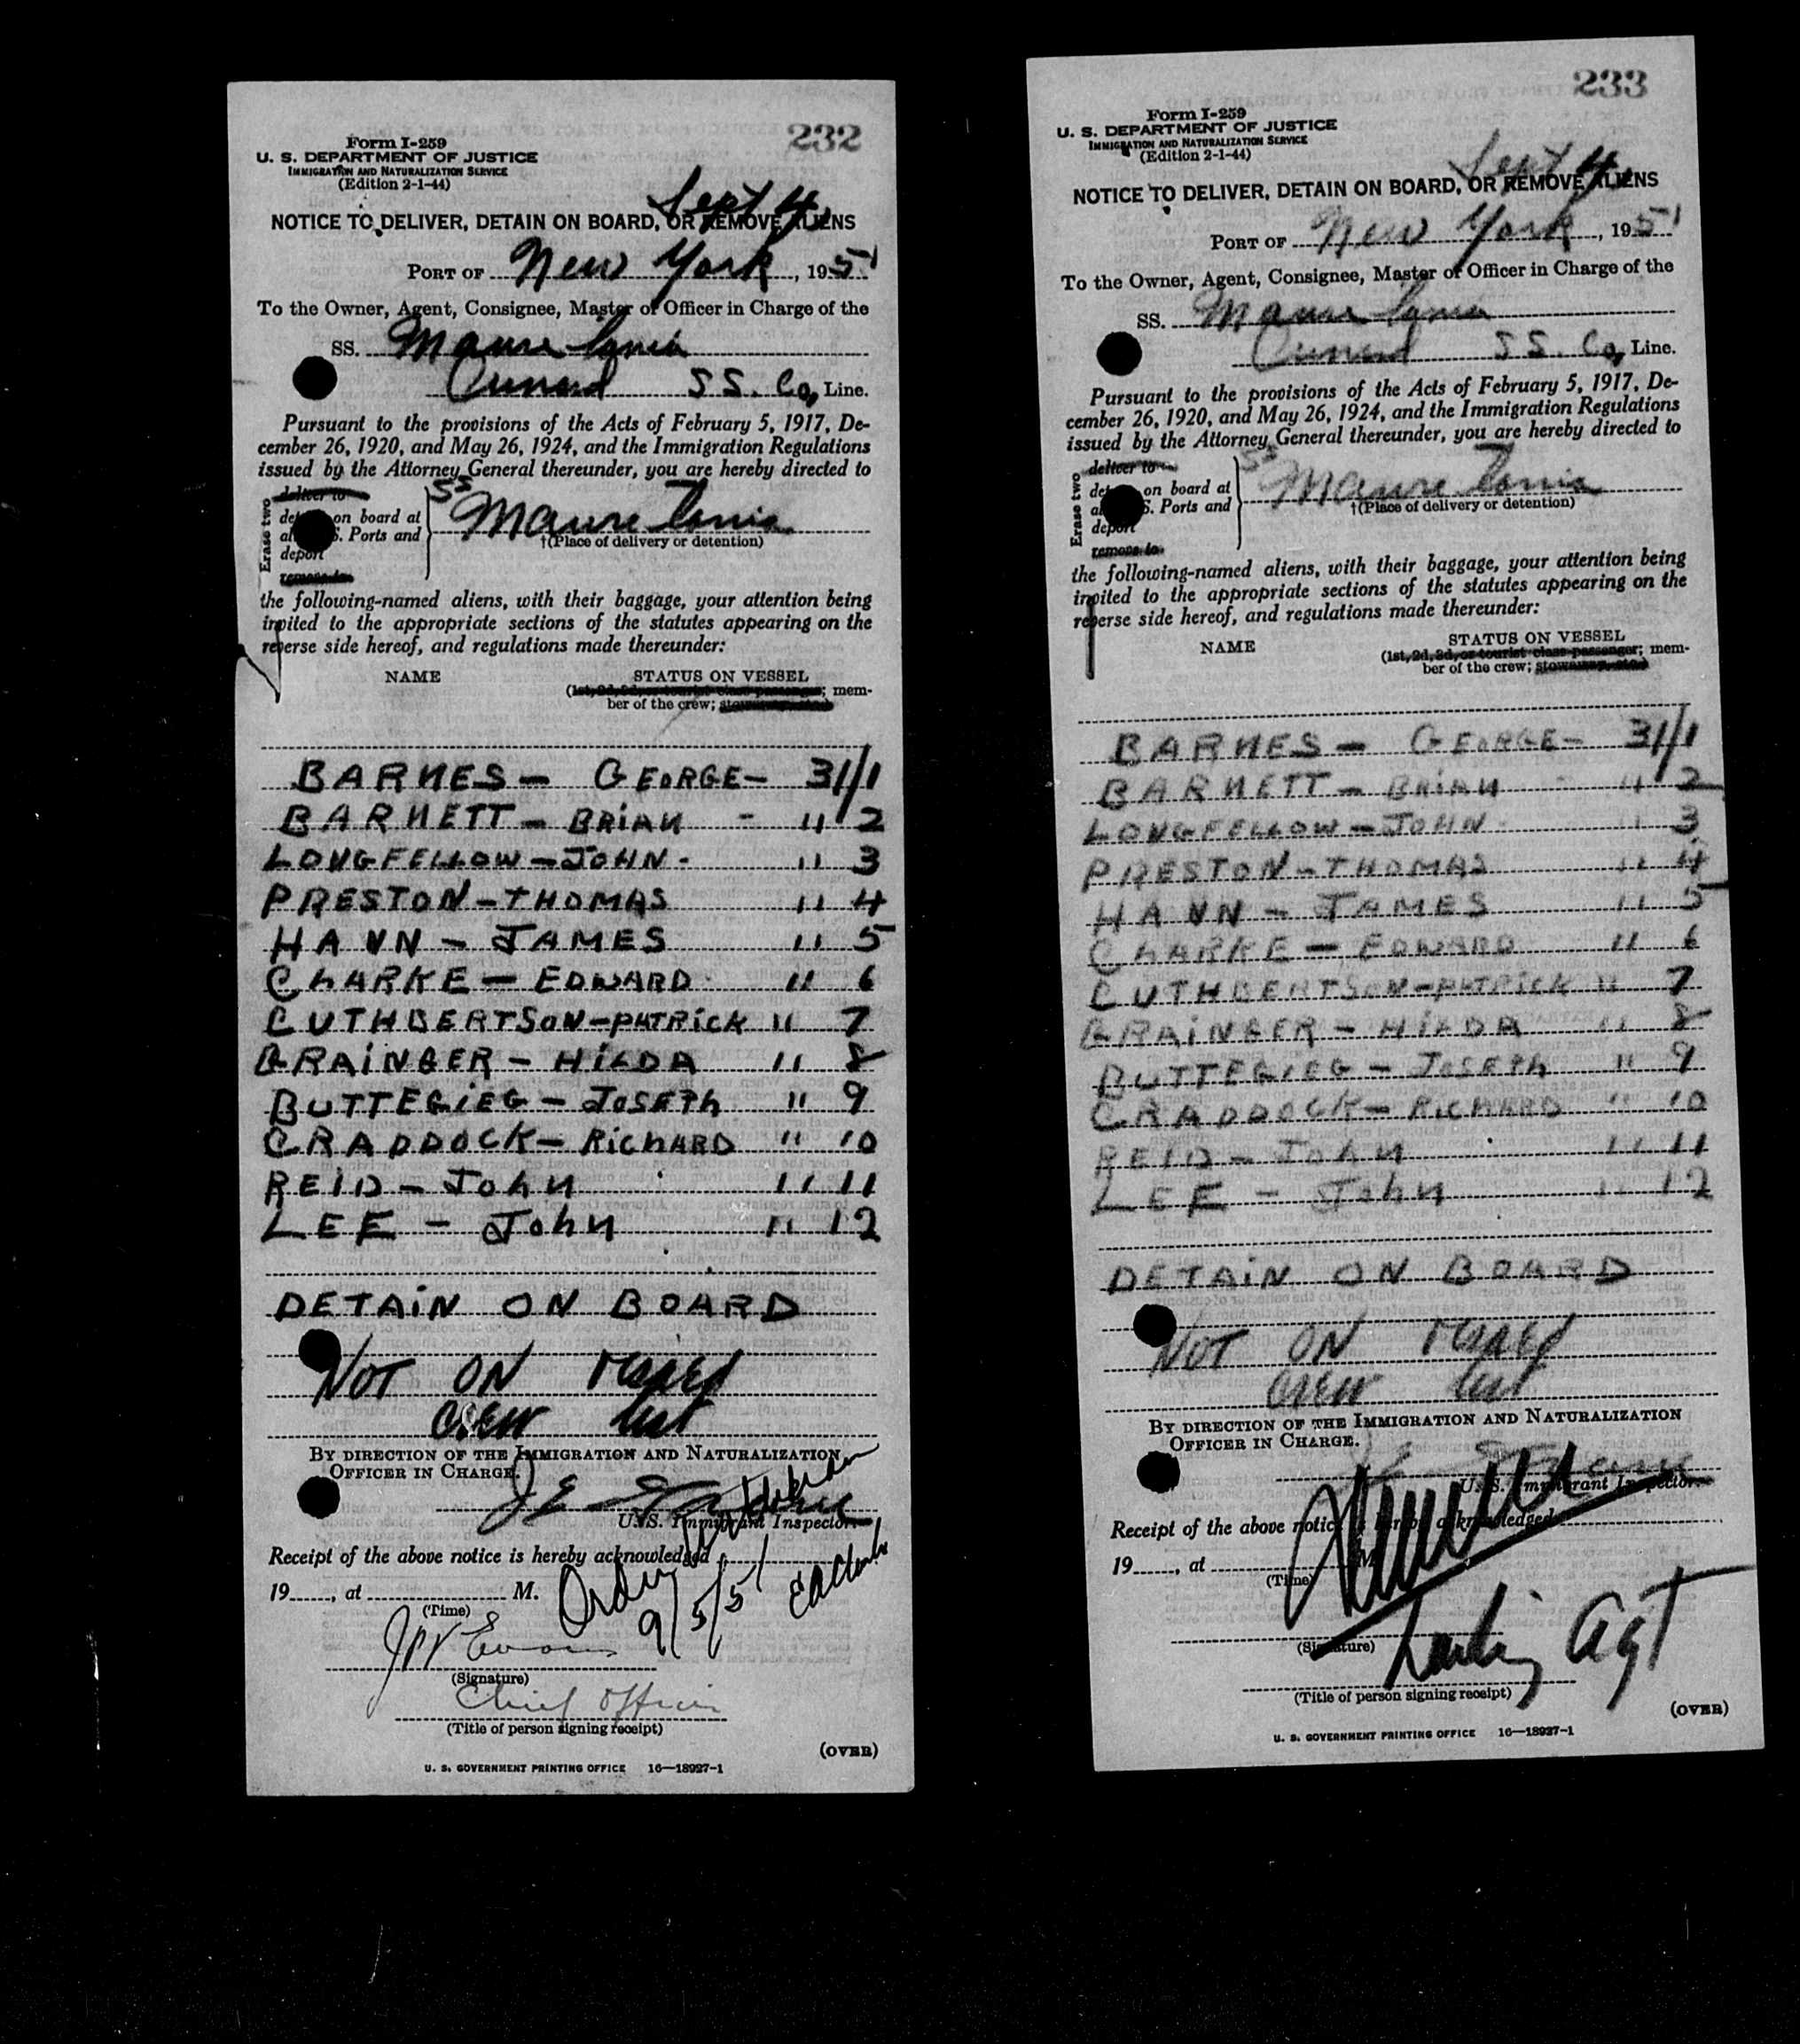 232
Form I-259
U. S. DEPARTMENT OF JUSTICE
IMMIGRATION AND NATURALIZATION SERVICE
(Edition 2-1-44)
Sept 4,
NOTICE TO DELIVER, DETAIN ON BOARD, OR REMOVE ALIENS
PORT OF New York, 1951
To the Owner, Agent, Consignee, Master or Officer in Charge of the
SS. Mauretania
Cunard SS. Co, Line.
Pursuant to the provisions of the Acts of February 5, 1917, De-
cember 26, 1920, and May 26, 1924, and the Immigration Regulations
issued by the Attorney General thereunder, you are hereby directed to
Erase two
deliver to
on board at
S. Ports and
deport
remove to
SS Mauretania
†(Place of delivery or detention)
the following-named aliens, with their baggage, your attention being
invited to the appropriate sections of the statutes appearing on the
reverse side hereof, and regulations made thereunder:
NAME STATUS ON VESSEL
(1st, 2d, 3d, or tourist class passenger; mem-
ber of the crew; stowaway, etc.)
BARNES - GEORGE - 31/1
BARNETT - BRIAN - " 2
LONGFELLOW - JOHN - " 3
PRESTON - THOMAS " 4
HANN - JAMES " 5
CLARKE - EDWARD " 6
CUTHBERTSON - PATRICK " 7
GRAINGER - HILDA " 8
BUTTEGIEG - JOSEPH " 9
CRADDOCK - RICHARD " 10
REID - John " 11
LEE - John " 12
DETAIN ON BOARD
NOT ON
CREW list
BY DIRECTION OF THE IMMIGRATION AND NATURALIZATION
OFFICER IN CHARGE.
J E
U. S. Immigrant Inspector.
Receipt of the above notice is hereby acknowledged
19____, at ____ M.
(Time)
9/5/51
Evans
(Signature)
Chief Officer
(Title of person signing receipt)
(OVER)
U. S. GOVERNMENT PRINTING OFFICE 16—18927-1
233
Form I-259
U. S. DEPARTMENT OF JUSTICE
IMMIGRATION AND NATURALIZATION SERVICE
(Edition 2-1-44)
Sept 4,
NOTICE TO DELIVER, DETAIN ON BOARD, OR REMOVE ALIENS
PORT OF New York, 1951
To the Owner, Agent, Consignee, Master or Officer in Charge of the
SS. Mauretania
Cunard SS. Co, Line.
Pursuant to the provisions of the Acts of February 5, 1917, De-
cember 26, 1920, and May 26, 1924, and the Immigration Regulations
issued by the Attorney General thereunder, you are hereby directed to
Erase two
deliver to
on board at
S. Ports and
deport
remove to
SS Mauretania
†(Place of delivery or detention)
the following-named aliens, with their baggage, your attention being
invited to the appropriate sections of the statutes appearing on the
reverse side hereof, and regulations made thereunder:
NAME STATUS ON VESSEL
(1st, 2d, 3d, or tourist class passenger; mem-
ber of the crew; stowaway, etc.)
BARNES - GEORGE - 31/1
BARNETT - BRIAN - " 2
LONGFELLOW - JOHN - " 3
PRESTON - THOMAS " 4
HANN - JAMES " 5
CLARKE - EDWARD " 6
CUTHBERTSON - PATRICK " 7
GRAINGER - HILDA " 8
BUTTEGIEG - JOSEPH " 9
CRADDOCK - RICHARD " 10
REID - John " 11
LEE - John " 12
DETAIN ON BOARD
NOT ON
CREW list
BY DIRECTION OF THE IMMIGRATION AND NATURALIZATION
OFFICER IN CHARGE.
J E
U. S. Immigrant Inspector.
Receipt of the above notice is hereby acknowledged
19____, at ____ M.
(Time)
(Signature)
agt
(Title of person signing receipt)
(OVER)
U. S. GOVERNMENT PRINTING OFFICE 16—18927-1